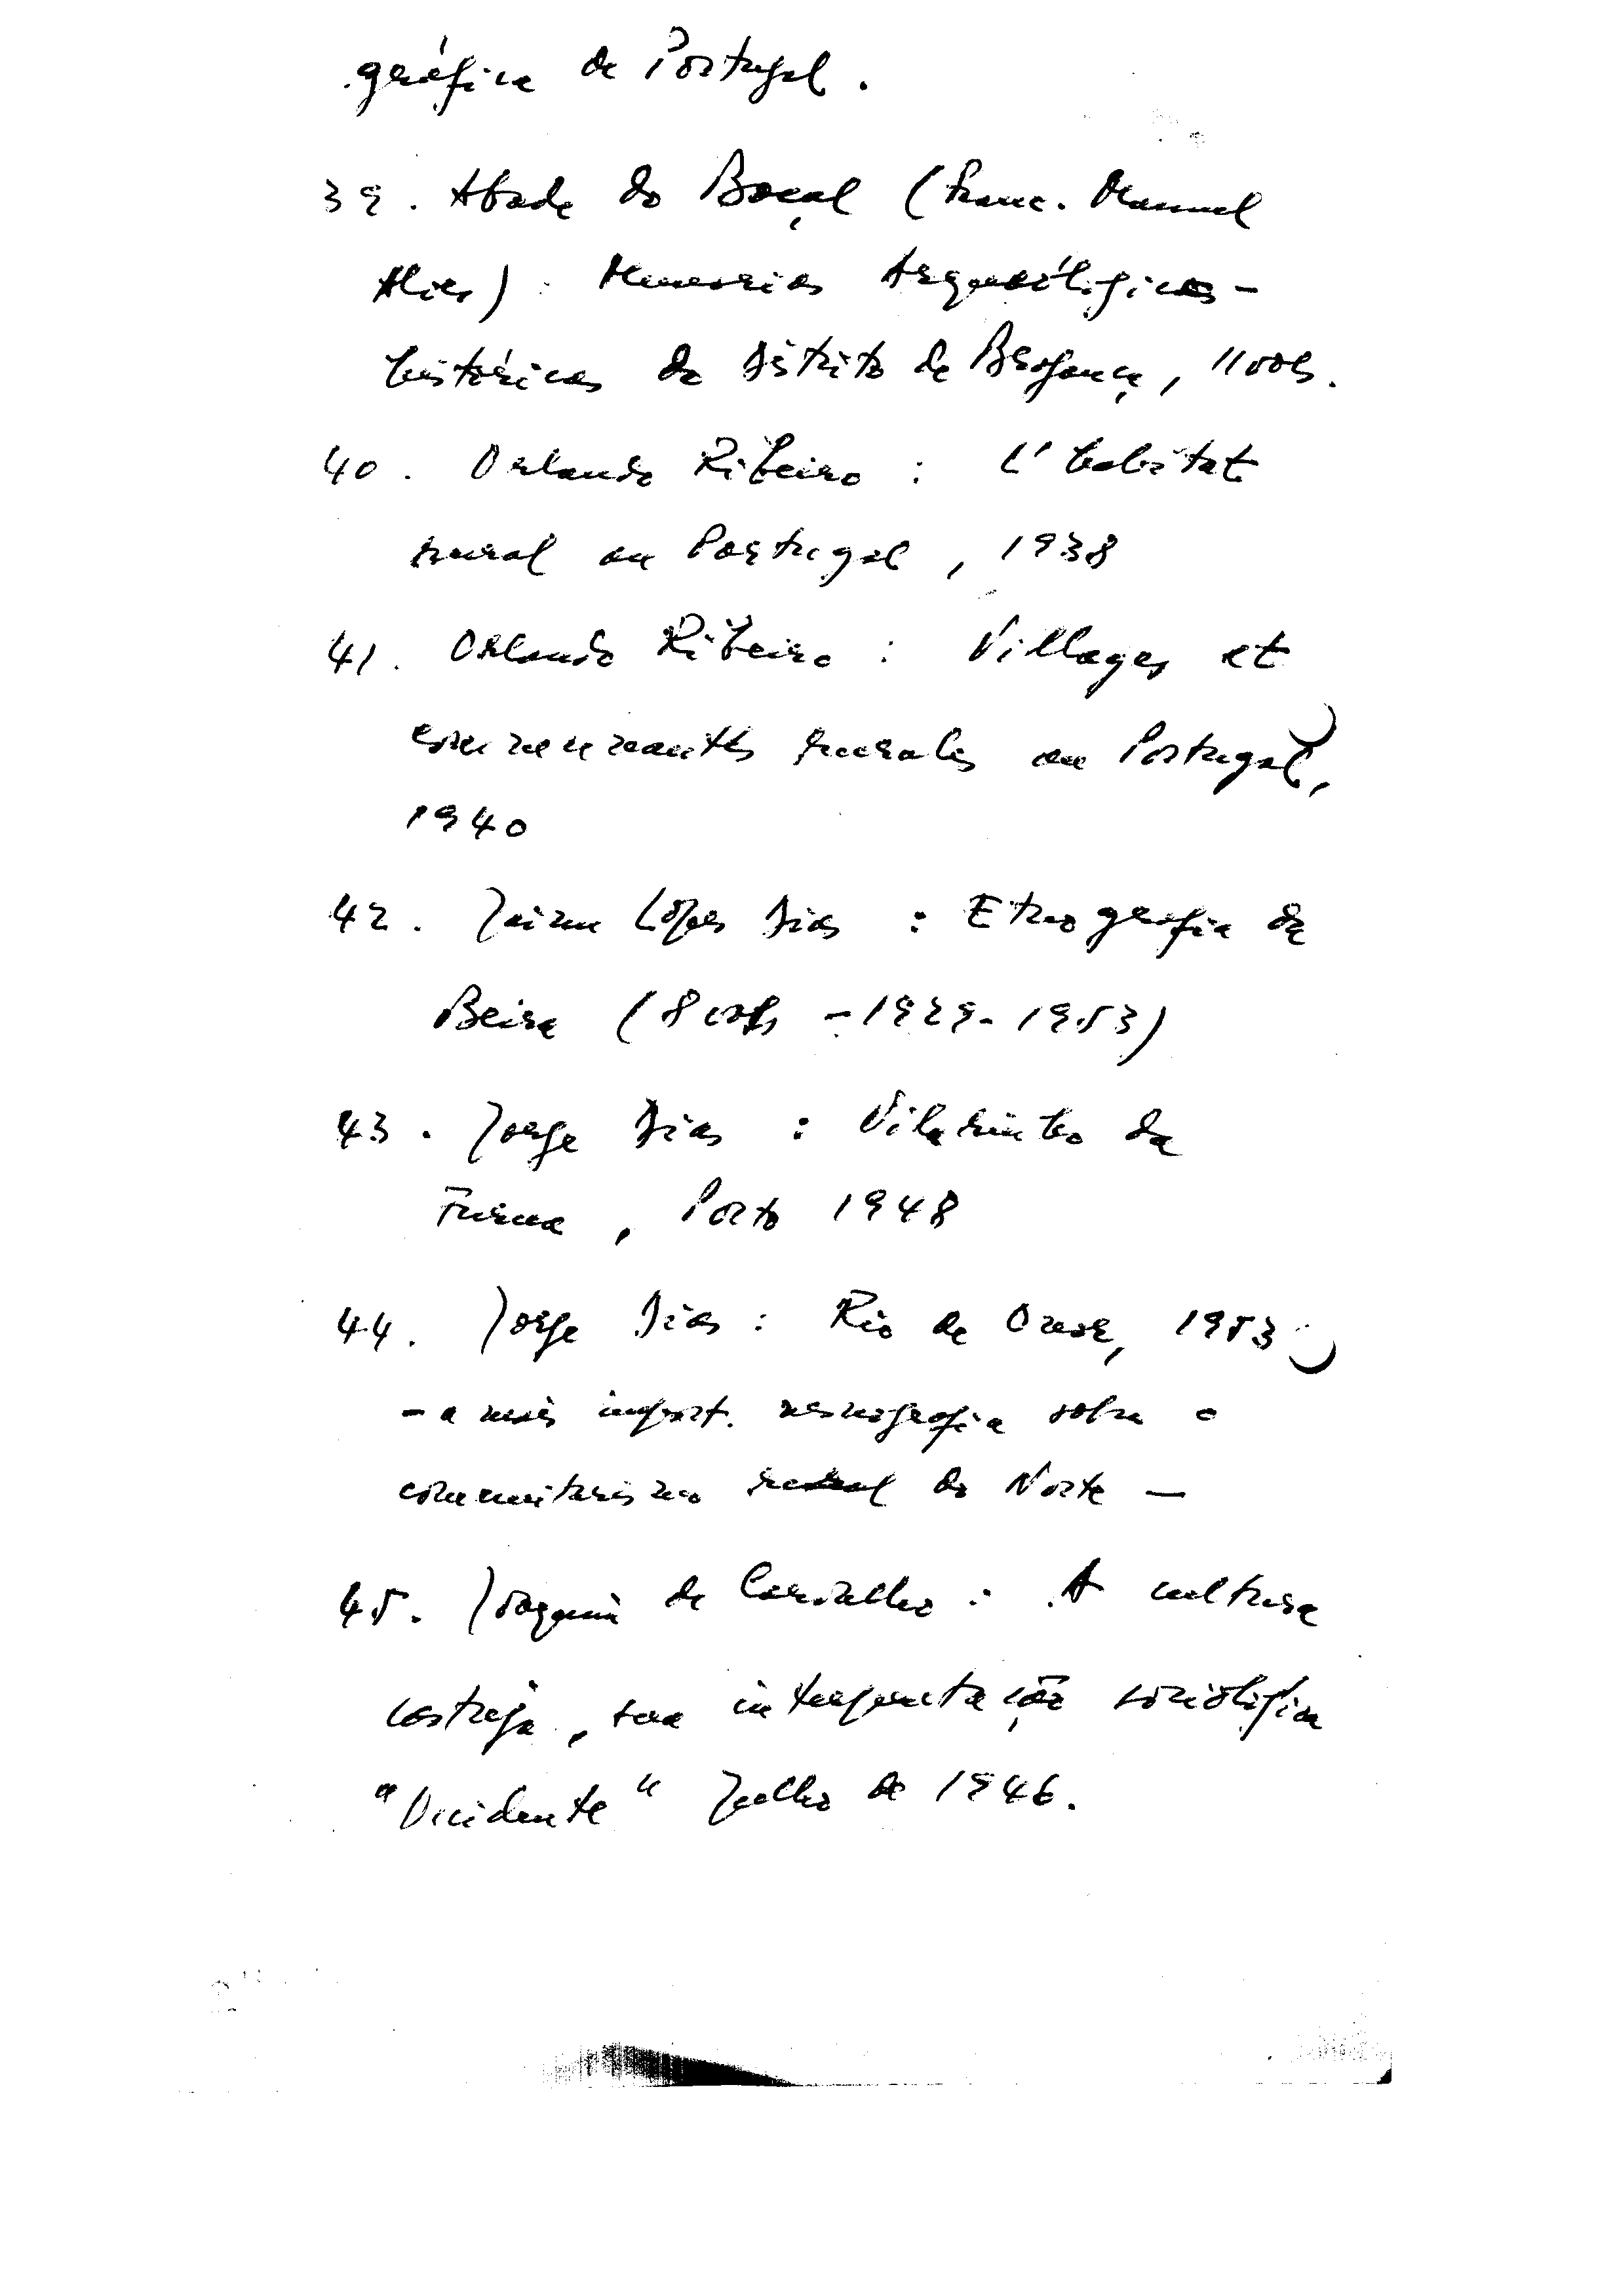 gráfica de Portugal.
39. Abade do Baçal (Franc. Manuel
Alves): Memorias Arqueológicas-
históricas do Distrito de Bragança, 11 vols.
40. Orlando Ribeiro: L'habitat
rural au Portugal, 1938
41. Orlando Ribeiro: Villages et
communautés rurales au Portugal,
1940
42. Jaime Lopes Dias: Etnografia da
Beira (8 vols - 1929-1953)
43. Jorge Dias: Vilarinho da
Furna, Porto 1948
44. Jorge Dias: Rio de Onor, 1953
- a mais import. monografia sobre o
comunitarismo rural do Norte -
45. Joaquim de Carvalho: A cultura
castreja, sua interpretação sociológica
"Ocidente" Julho de 1946.